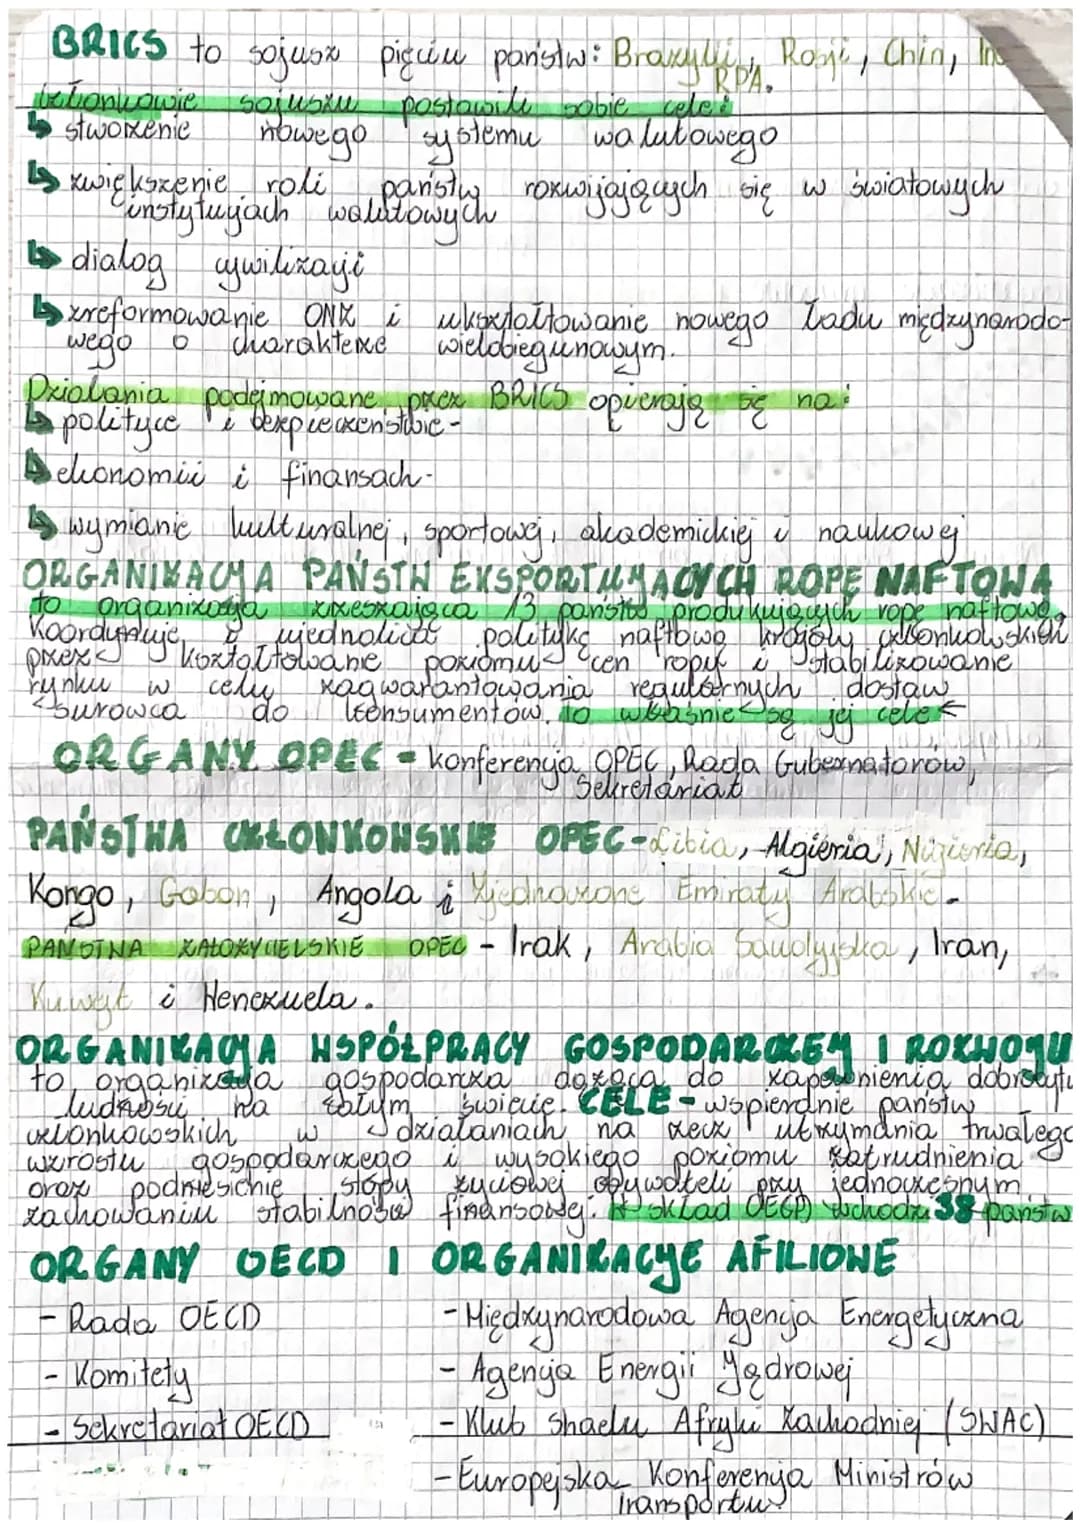 BRICS to sojusz pięciu państw: Brazylii, Rosji, Chin, In
RPA.
członkowie sojuszu postawili sobie cele:
↳ stworzenie nowego systemu walutowego
↳ zwiększenie roli państw rozwijających się w światowych
instytucjach walutowych
↳ dialog cywilizacji
↳ zreformowanie ONZ i ukształtowanie nowego ładu międzynarodo-
wego o charakterze wielobiegunowym.
Działania podejmowane przez BRICS opierają się na:
↳ polityce i bezpieczeństwie-
↳ ekonomii i finansach-
↳ wymianie kulturalnej, sportowej, akademickiej i naukowej
ORGANIZACJA PAŃSTW EKSPORTUJĄCYCH ROPĘ NAFTOWĄ
to organizacja zrzeszająca 13 państw produkujących ropę naftową.
Koordynuje i ujednolica politykę naftową krajów członkowskich
przez kształtowane poziomu cen ropy i stabilizowanie
rynku w celu zagwarantowania regularnych dostaw
surowca do konsumentów. to właśnie są jej cele ←
ORGANY OPEC - konferencja OPEC, Rada Gubernatorów,
Sekretariat
PAŃSTWA CZŁONKOWSKIE OPEC - Libia, Algieria, Nigieria,
Kongo, Gabon, Angola i Zjednoczone Emiraty Arabskie.
PAŃSTWA ZAŁOŻYCIELSKIE OPEC - Irak, Arabia Saudyjska, Iran,
Kuwejt i Wenezuela.
ORGANIZACJA WSPÓŁPRACY GOSPODARCZEJ I ROZWOJU
to organizacja gospodarcza dążąca do zapewnienia dobrobytu
ludności na całym świecie. CELE - wspieranie państw
członkowskich w działaniach na rzecz utrzymania trwałego
wzrostu gospodarczego i wysokiego poziomu zatrudnienia
oraz podniesienie stopy życiowej obywateli przy jednoczesnym
zachowaniu stabilności finansowej. W skład OECD wchodzi 38 państw
ORGANY OECD I ORGANIZACJE AFILIOWE
- Rada OECD
- Komitety
- Sekretariat OECD
- Międzynarodowa Agencja Energetyczna
- Agencja Energii Jądrowej
- Klub Shaelu Afryki Zachodniej (SWAC)
- Europejska Konferencja Ministrów
Transportu